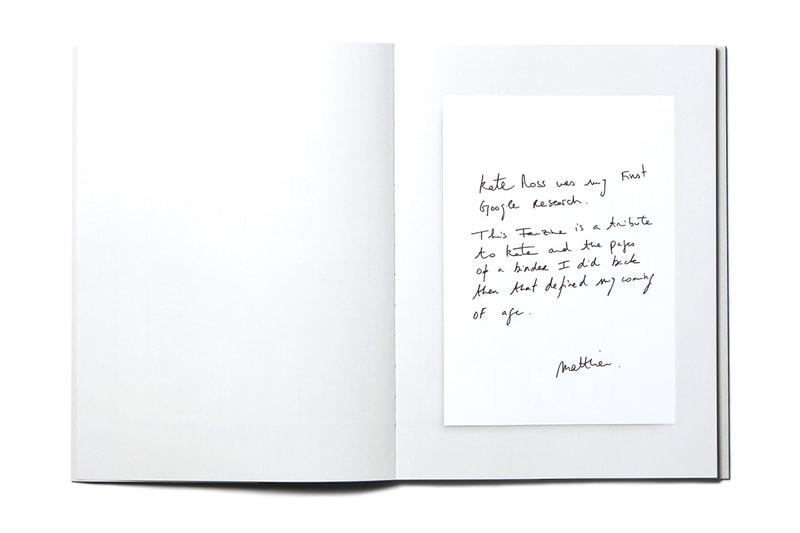 Kate Moss was my First
Google Research.
This Fanzine is a tribute
to Kate and the pages
of a binder I did back
then that defined my coming
OF age.
Matthieu.